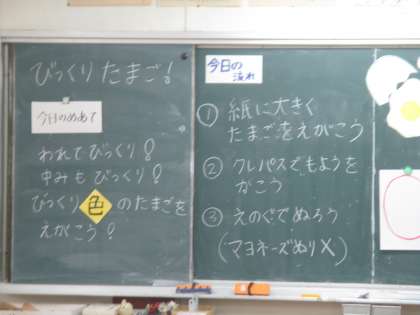 びっくりたまご!
今日のめあて
われてびっくり!
中みもびっくり!
びっくり色のたまごを
えがこう!
今日の
流れ
① 紙に大きく
たまごをえがこう
② クレパスでもようを
かこう
③ えのぐでぬろう
(マヨネーズぬり×)